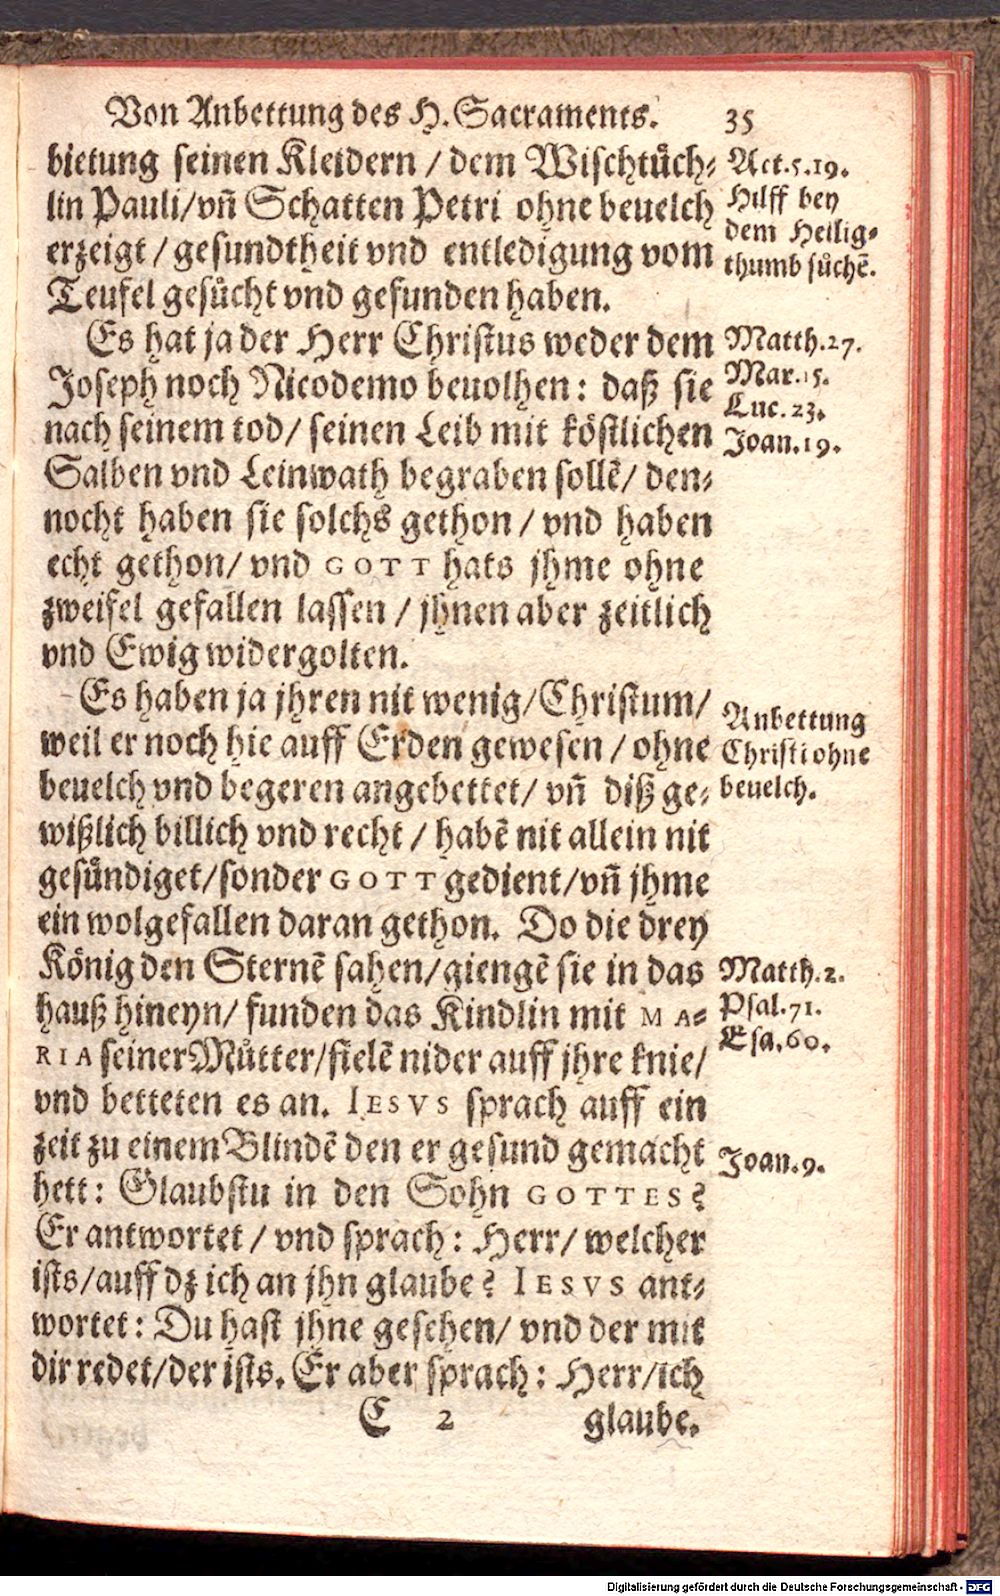 Von Anbettung des H. Sacraments. 35
bietung seinen Kleidern / dem Wischtůch-
lin Pauli/vñ Schatten Petri ohne beuelch
erzeigt / gesundtheit vnd entledigung vom
Teufel gesůcht vnd gefunden haben.
Act.5.19.
Hilff bey
dem Heilig-
thumb sůchẽ.
Es hat ja der Herr Christus weder dem
Joseph noch Nicodemo beuolhen: daß sie
nach seinem tod/ seinen Leib mit köstlichen
Salben vnd Leinwath begraben sollẽ/ den-
nocht haben sie solchs gethon / vnd haben
echt gethon/ vnd GOTT hats jhme ohne
zweifel gefallen lassen / jhnen aber zeitlich
vnd Ewig widergolten.
Matth.27.
Mar.15.
Luc.23.
Joan.19.
Es haben ja jhren nit wenig/Christum/
weil er noch hie auff Erden gewesen / ohne
beuelch vnd begeren angebettet/ vñ diß ge-
wißlich billich vnd recht / habẽ nit allein nit
gesündiget/sonder GOTT gedient/vñ jhme
ein wolgefallen daran gethon. Do die drey
König den Sternẽ sahen/giengẽ sie in das
hauß hineyn/ funden das Kindlin mit MA-
RIA seiner Můtter/fielẽ nider auff jhre knie/
vnd betteten es an. IESVS sprach auff ein
zeit zu einem Blindẽ den er gesund gemacht
hett: Glaubstu in den Sohn GOTTES?
Er antwortet / vnd sprach: Herr/ welcher
ists/auff dz ich an jhn glaube? IESVS ant-
wortet: Du hast jhne gesehen/ vnd der mit
dir redet/der ists. Er aber sprach: Herr/ich
Anbettung
Christi ohne
beuelch.
Matth.2.
Psal.71.
Esa.60.
Joan.9.
C 2 glaube.
Digitalisierung gefördert durch die Deutsche Forschungsgemeinschaft - DFG